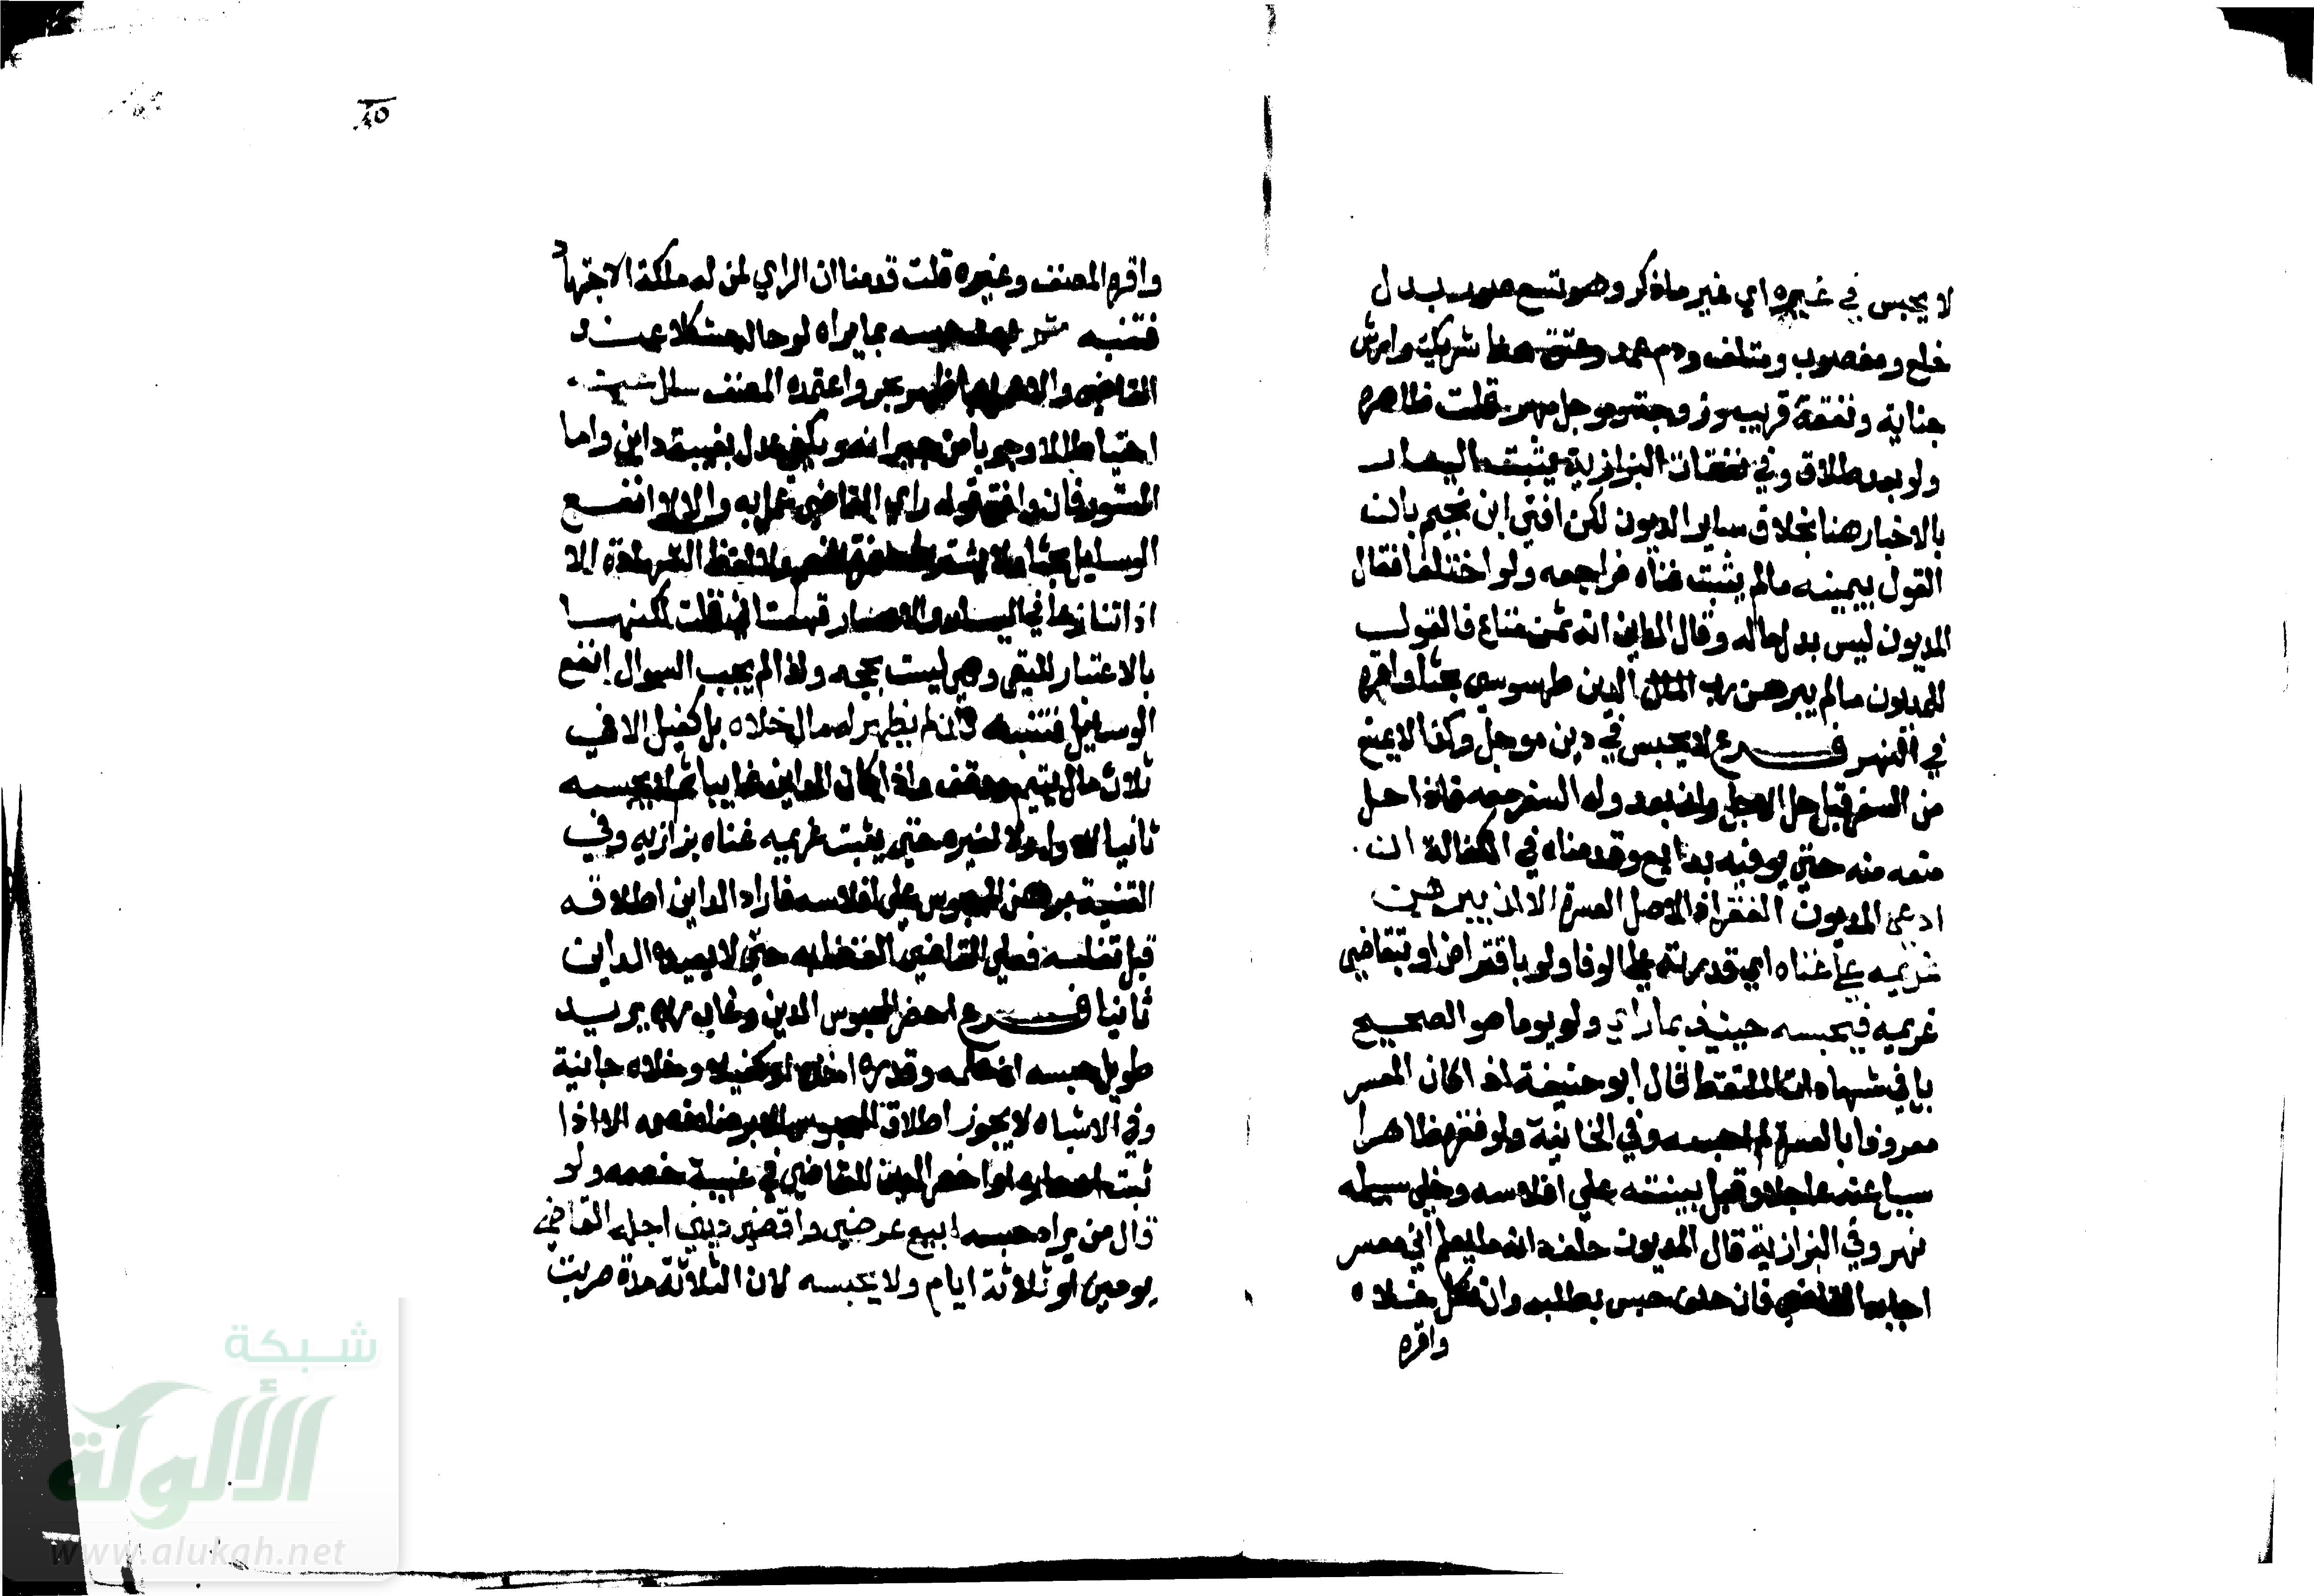 لا يحبس في غيره اي غير ما ذكر وهو تسع صور بدل
خلع ومغصوب ومتلف ودم عمد وعتق حظ شريك وارش
جناية ونفقة قريب وزوجة وموجل مهر قلت ظاهره
ولو بعد طلاق وفي نفقات البزازية يثبت اليسار
بالاخبار هنا بخلاف ساير الديون لكن افتي ابن نجيم بان
القول بيمينه مالم يثبت غناه فراجعه ولو اختلفا فقال
المديون ليس بدل مال وقال الداين انه ثمن متاع فالقول
للمديون مالم يبرهن رب الدين طرسوسي بحثا واقره
في النهر فرع لا يحبس في دين موجل وكذا لا يمنع
من السفر قبل حل الاجل وان بعد وله السفر معه فاذا حل
منعه منه حتي يوفيه بدايع وقدمناه في الكفالة ان
ادعي المديون الفقر اذ الاصل العسرة الا ان يبرهن
غريمه علي غناه اي قدرته علي الوفا ولو باقتراض او بتقاضي
غريمه فيحبسه حينيذ بما راي ولو يوما هو الصحيح
بل في شهادات الملتقط قال ابو حنيفة اذا كان المعسر
معروفا بالعسرة لم احبسه وفي الخانية ولو فقره ظاهرا
سال عنه عاجلا وقبل بينته علي افلاسه وخلي سبيله
نهر وفي البزازية قال المديون حلفه انه ما يعلم اني معسر
اجابه القاضي فان حلف حبس بطلبه وان نكل خلاه
واقره
٤٥
واقره المصنف وغيره قلت قدمنا ان الراي لمن له ملكة الاجتهاد
فتنبه ثم بعد حبسه بما يراه لو حاله مشكلا عند
القاضي والا عمل بما ظهر بحر واعتمده المصنف سال عنه
احتياطا لا وجوبا من جيرانه ويكفي عدل بغيبة داين واما
المستور فان وافق قوله راي القاضي عمل به والا لا انفع
الوسايل بحثا ولا يشترط حضرة الخصم ولا لفظ الشهادة الا
اذا تنازعا في اليسار والاعسار قهستاني قلت لكنها
بالاعسار للنفي وهي ليست بحجة ولذا لم يجب السوال انفع
الوسايل فتنبه فان لم يظهر له مال خلاه بلا كفيل الا في
ثلاث مال يتيم ووقف واذا كان الداين غايبا ثم لا يحبسه
ثانيا للاول ولا لغيره حتي يثبت غريمه غناه بزازيه وفي
القنية برهن المحبوس علي افلاسه فاراد الداين اطلاقه
قبل تفليسه فعلي القاضي القضا به حتي لا يعيده الداين
ثانيا فرع احضر المحبوس الدين وغاب ربه يريد
طويل حبسه ان علمه وقدره اخذه او كفيلا وخلاه خانية
وفي الاشباه لا يجوز اطلاق المحبوس الا برضا خصمه الا اذا
ثبت اعساره او احضر الدين للقاضي في غيبة خصمه ولو
قال من يراد حبسه ابيع عرضي واقضي ديني اجله القاضي
يومين او ثلاثة ايام ولا يحبسه لان الثلاثة مدة ضربت
شبكة
الألوكة
www.alukah.net